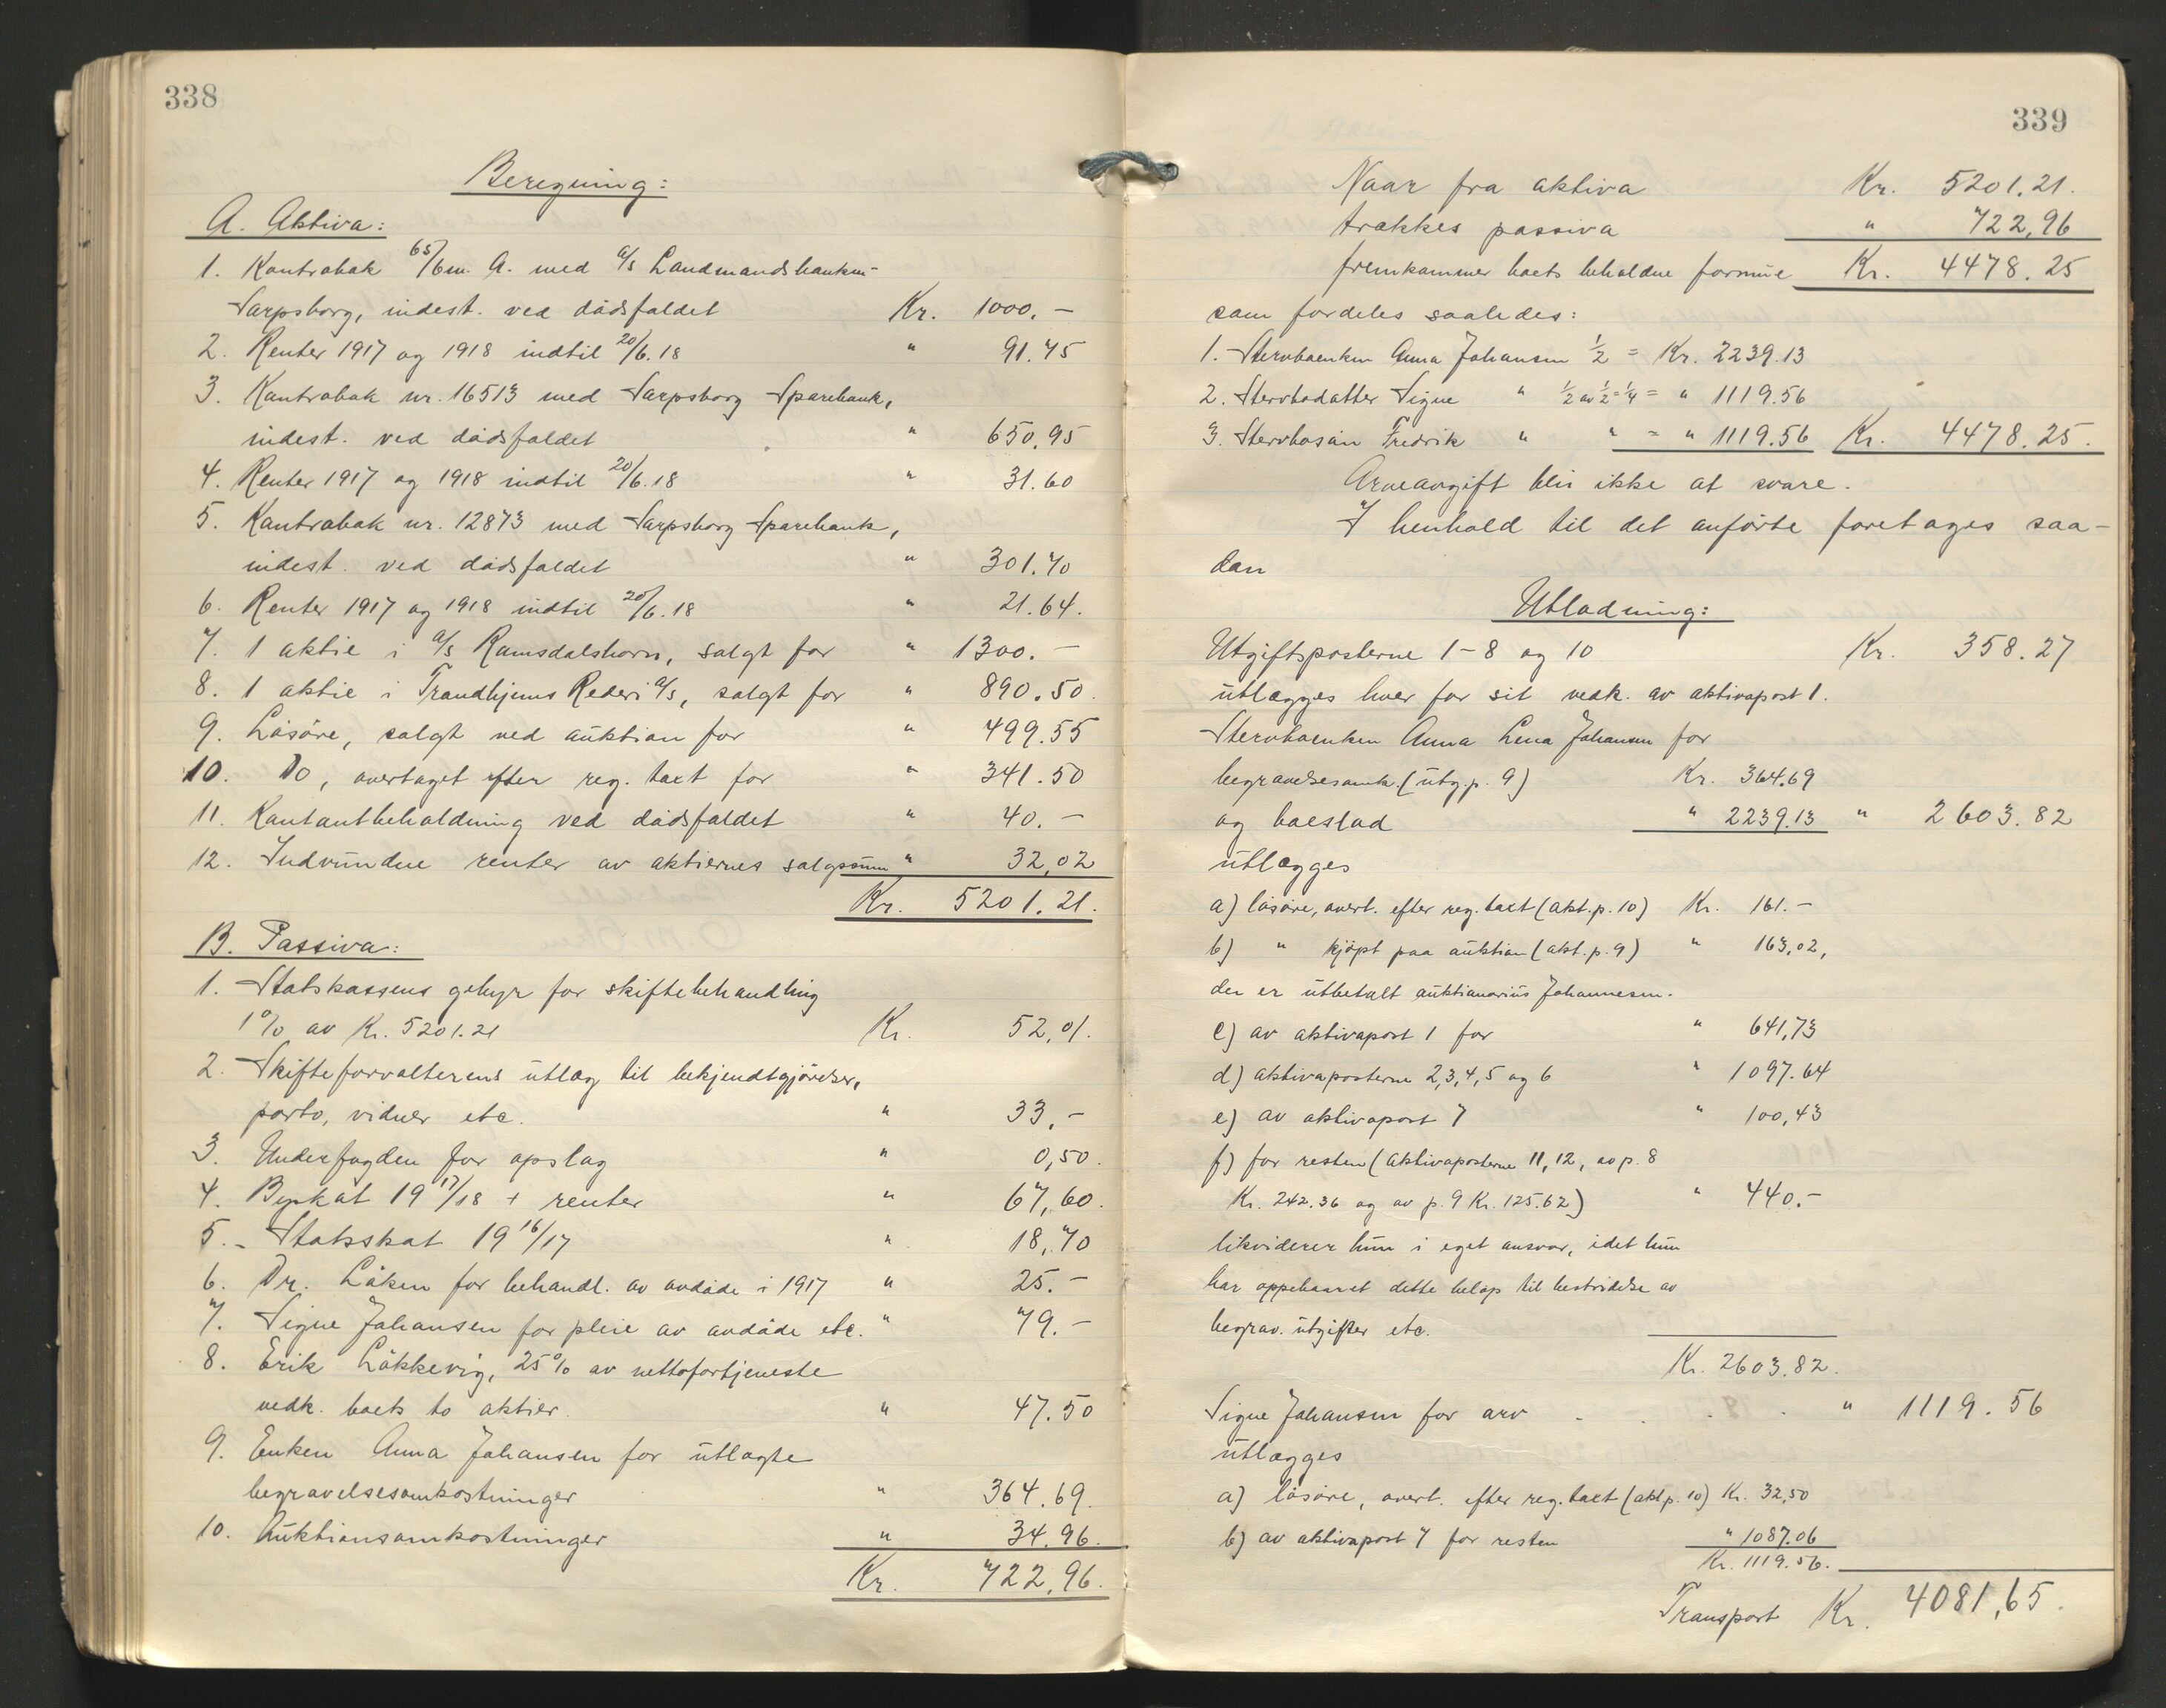 338
Beregning:
A. Aktiva:
1. Kontrabok 65/6m. A. med A/S Landmandsbanken-
Sarpsborg, indest. ved dødsfaldet Kr. 1000.-
2. Renter 1917 og 1918 indtil 20/6.18 " 91.75
3. Kontrabok nr. 16513 med Sarpsborg Sparebank,
indest. ved dødsfaldet " 650.95
4. Renter 1917 og 1918 indtil 20/6.18 " 31.60
5. Kontrabok nr. 12873 med Sarpsborg Sparebank,
indest. ved dødsfaldet " 301.70
6. Renter 1917 og 1918 indtil 20/6.18 " 21.64.
7. 1 aktie i A/S Ramsdalshorn, solgt for " 1300.-
8. 1 aktie i Trondhjems Rederi A/S, solgt for " 890.50.
9. Løsøre, solgt ved auktion for " 499.55
10. Do, overtaget efter reg. taxt for " 341.50
11. Kontantbeholdning ved dødsfaldet " 40.-
12. Indvundne renter av aktiernes salgssum " 32,02
Kr. 5201.21.
B. Passiva:
1. Statskassens gebyr for skiftebehandling
1% av Kr. 5201.21 Kr. 52,01.
2. Skifteforvalterens utlæg til bekjendtgjørelser,
porto, vidner etc. " 33,-
3. Underfogden for opslag " 0,50.
4. Byskat 19 17/18 + renter " 67,60.
5. - Statsskat 19 16/17 " 18,70
6. Dr. Løken for behandl. av avdøde i 1917 " 25.-
7. Signe Johansen for pleie av avdøde etc. " 79.-
8. Erik Løkkevig, 25% av nettofortjeneste
vedk. boets to aktier. " 47.50
9. Enken Anna Johansen for utlagte
begravelsesomkostninger " 364.69.
10. Auktionsomkostninger " 34.96.
Kr. 722,96.
339
Naar fra aktiva Kr. 5201.21.
trækkes passiva " 722,96
fremkommer boets beholdne formue Kr. 4478.25
som fordeles saaledes:
1. Stervboenken Anna Johansen 1/2 = Kr. 2239.13
2. Stervbodatter Signe " 1/2 av 1/2 = 1/4 = " 1119.56
3. Stervbosøn Fredrik " " = " 1119.56 Kr. 4478.25.
Arveavgift blir ikke at svare.
I henhold til det anførte foretages saa-
dan
Utlodning:
Utgiftsposterne 1-8 og 10 Kr. 358.27
utlægges hver for sit vedk. av aktivapost 1.
Stervboenken Anna Lena Johansen for
begravelsesomk. (utg.p. 9) Kr. 364.69
og boeslod " 2239.13 " 2603.82
utlægges
a) løsøre, overt. efter reg. taxt (akt.p. 10) Kr. 161.-
b) " kjøpt paa auktion (akt.p. 9) " 163,02,
der er utbetalt auktionarius Johannesen.
c) av aktivapost 1 for " 641,73
d) aktivaposterne 2,3,4,5 og 6 " 1097.64
e) av aktivapost 7 " 100,43
f) for resten (aktivaposterne 11, 12, av p. 8
Kr. 242.36 og av p. 9 Kr. 125.62) " 440.-
likviderer hun i eget ansvar, idet hun
har oppebaaret dette beløp til bestridelse av
begrav. utgifter etc.
Kr. 2603.82.
Signe Johansen for arv - . . . " 1119.56
utlægges
a) løsøre, overt. efter reg. taxt (akt p. 10) Kr. 32,50
b) av aktivapost 7 for resten " 1087.06
Kr. 1119.56.
Transport Kr. 4081,65.